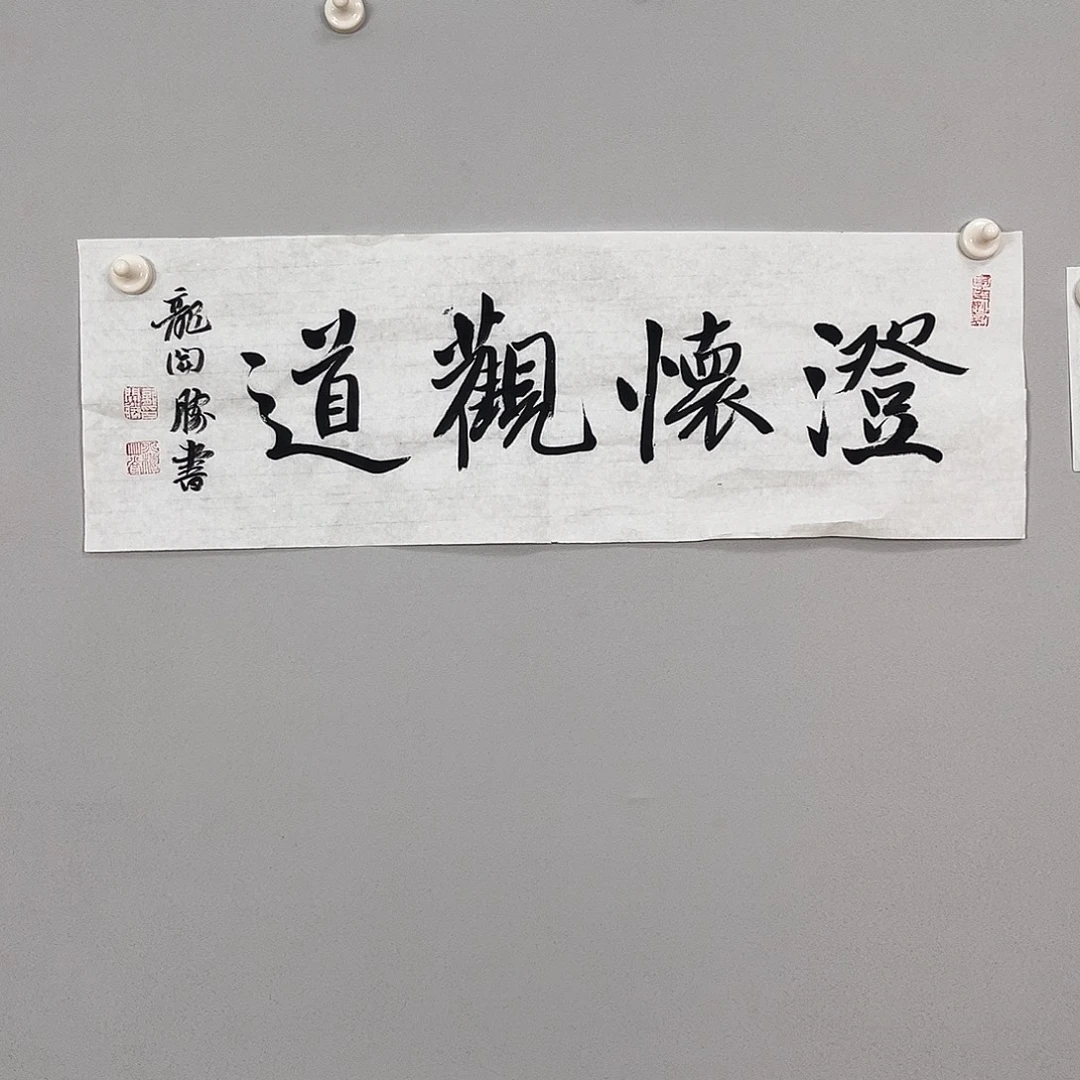 澄懷觀道
龍開勝書